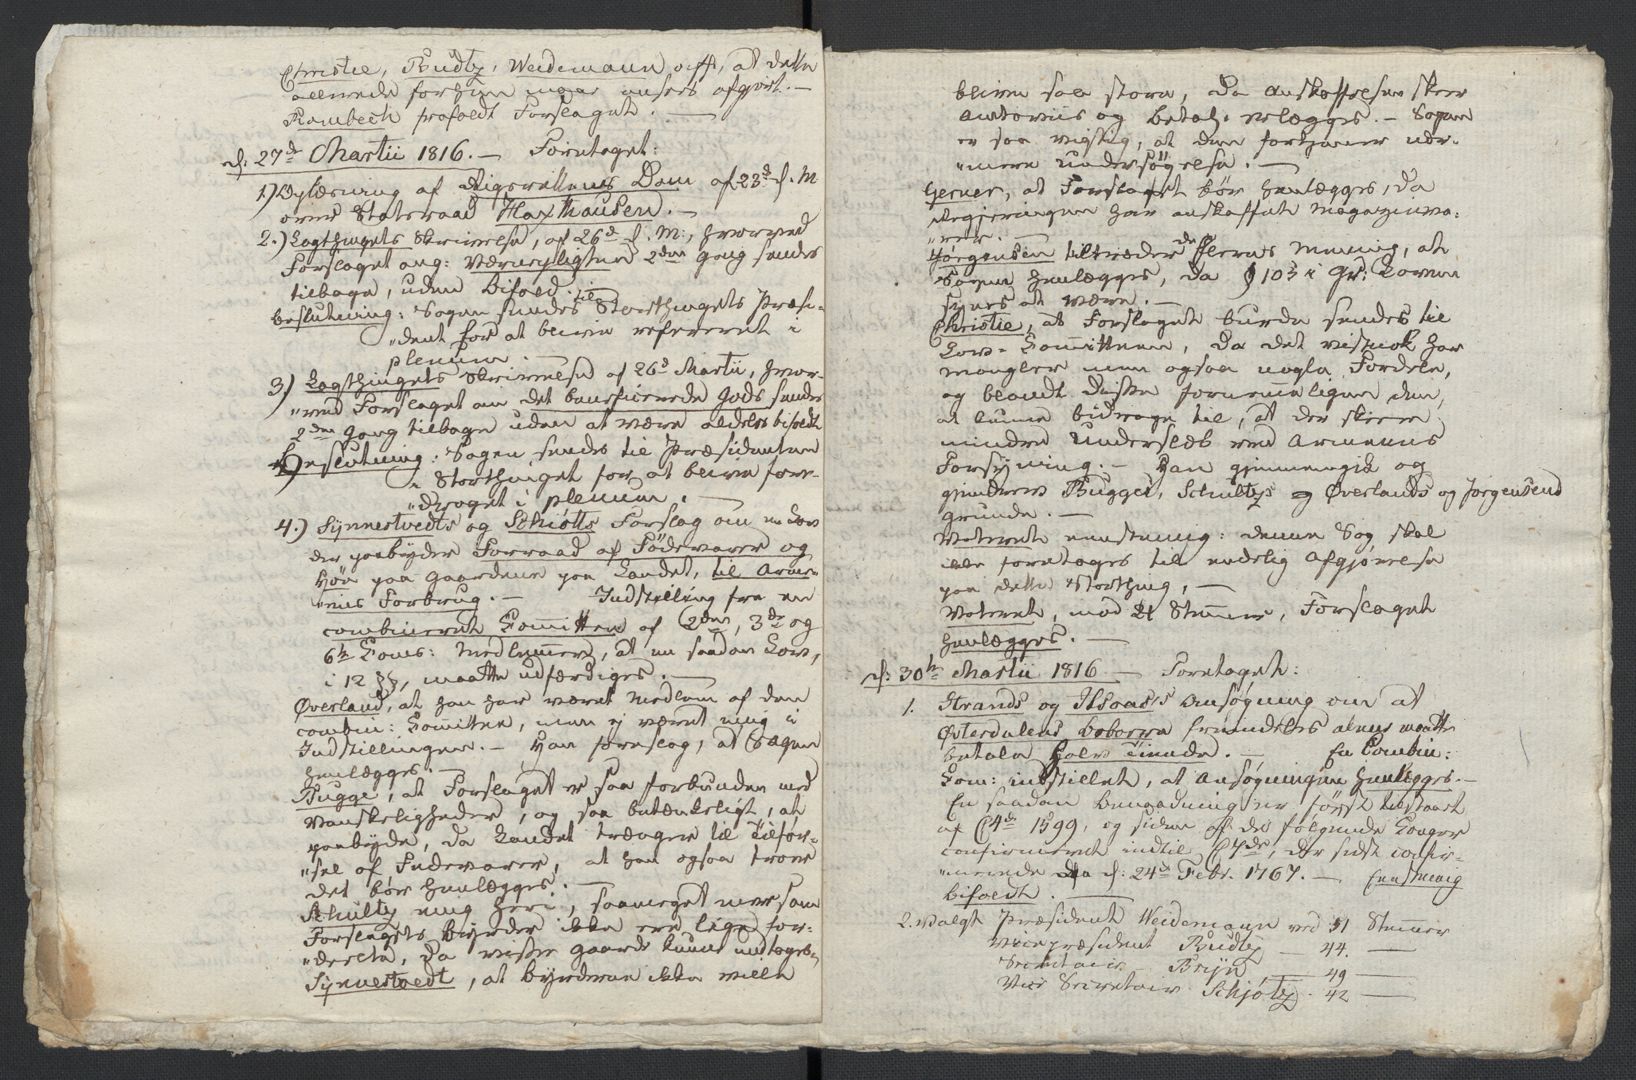 Christie, Rudtz, Weidemann off, at dette
allerede forhen maae ansees afgjort. —
Rambech frafaldt Forslaget. —
d: 27d Martii 1816. — Foretaget:
1) Oplæsning af Rigsrettens Dom af 23d d. M
over Statsraad Haxthausen. —
2.) Lagthingets Skrivelse, af 26d d. M:, hvorved
Forslaget ang: Værnepligten 2den Gang sendes
tilbage, uden Bifald. —
Beslutning: Sagen sendes til Storthingets Præsi-
„dent for at blive refereret i
plenum. —
3) Lagthingets Skrivelse af 26d Martii, hvor-
„ved Forslaget om det beneficerede Gods sendes
2den Gang tilbage uden at være aldeles bifaldt
Beslutning: Sagen sendes til Præsidenten
i Storthinget for at blive fore-
„draget i plenum. —
4.) Synnestvedts og Schiøtts Forslag om en Lov
der paabyder Forraad af Fødevarer og
Høe paa Gaardene paa Landet, til Arme-
„ens Forbrug. — Indstilling fra en
combineret Comitteé af 2den, 3die og
6te Coms: Medlemmer, at en saadan Lov,
i 12 §§, maatte udfærdiges. —
Øverland, at han har været Medlem af den
combin: Comittee, men ej været enig i
Indstillingen. — Han foreslog, at Sagen
henlægges. —
Bugge, at Forslaget er saa forbunden med
Vanskeligheder, og saa betænkeligt, at
paabyde, da Landet trænger til Tilfør-
„sel af Fødevarer, at han ogsaa troer
det bør henlægges. —
Schultz enig heri, saameget mer som
Forslagets Byrder ikke ere lige for-
„deelte, da visse Gaarde kunne undtages.
Synnestvedt, at Byrderne ikke ville
blive saa store, da Anskaffelsen skeer
og betal: erlægges. — Sagen
er saa vigtig, at den fortjener nær-
„mere Undersøgelse. —
Gerner, at Forslaget bør henlægges, da
Regjeringen har anskaffet Magaziner:
Jørgensen tiltræder de fleres Mening, at
Sagen henlægges, da § 103 i Gr: Loven
synes at være. —
Christie, at Forslaget burde sendes til
Lov-Comitteen, da det vistnok har
Mangler men ogsaa nogle Fordele,
og blandt disse fornemmeligen den,
at kunne bidrage til, at der skeer
mindre Underslæb ved Armeens
Forsyning. — Han gjennemgik og
gjendrev Bugges, Schultzs og Øverlands og Jørgensens
Grunde. —
Voteret eenstemmig: denne Sag skal
ikke foretages til endelig Afgjørelse
paa dette Storthing, —
Voteret, mod 21 Stemmer, Forslaget
henlægges. —
d: 30te Martii 1816 — Foretaget:
1. Strands og Ansøgning om at
Østerdalens Beboere fremdeles alene maatte
betale halv Tiende. — En Combin:
Com: indstillet, at Ansøgningen henlægges. —
En saadan Benaadning er først tilstaaet
af C4de 1599, og siden af de følgende Konger
confirmeret indtil C7de, der sidst confir-
„merede den d: 24de Febr. 1767. — Eenstemmig
bifaldt. —
2. Valgt Præsident Weidemann ved 51 Stemmer
Vicepræsident Rudtz — 44. —
Secretair Brijn — 49 —
Vice Secretair Schjøtz. 42 —